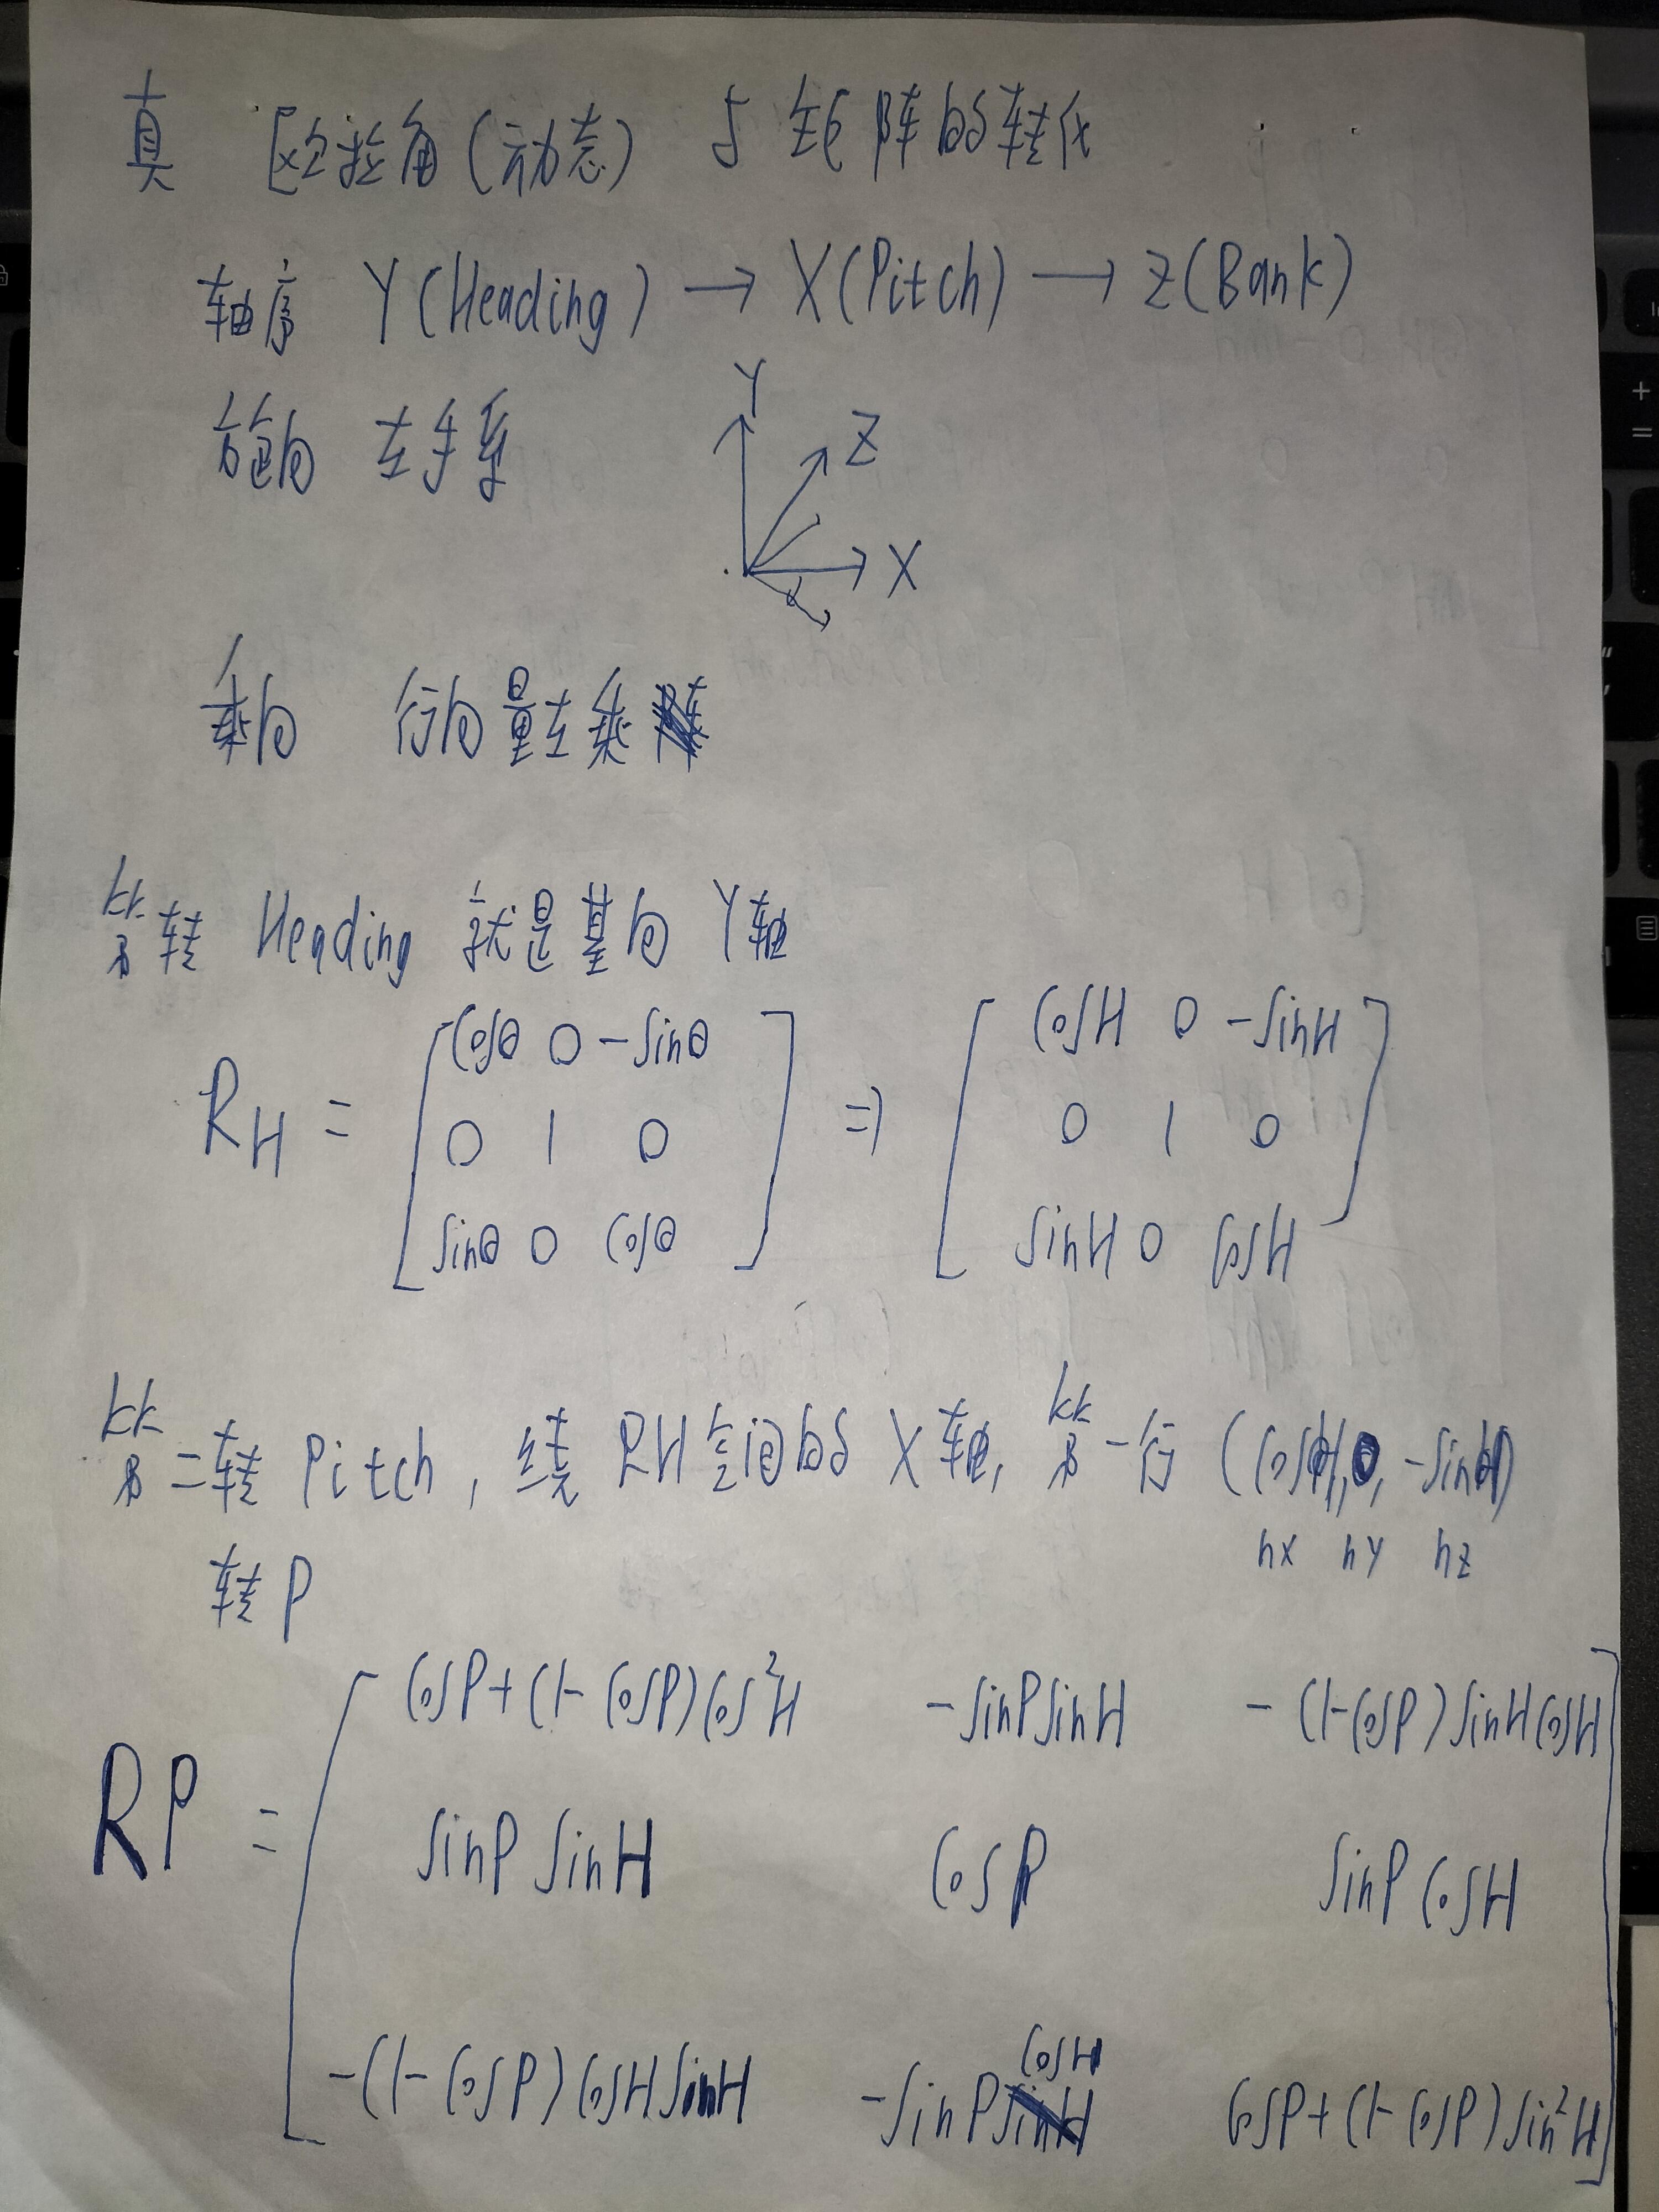 真 欧拉角(动态) 与矩阵的转化
轴序 Y(Heading) → X(Pitch) → Z(Bank)
旋向 左手系
Y
Z
X
乘向 行向量左乘
第一转 Heading 就是基向Y轴
RH = [cosθ 0 -sinθ ⇒ [cosH 0 -sinH
0 1 0 0 1 0
sinθ 0 cosθ] sinH 0 cosH]
第二转 Pitch, 绕RH空间的X轴, 第一行 (cosH, 0, -sinH)
hx hy hz
转P
RP = [cosP+(1-cosP)cos²H -sinPsinH -(1-cosP)sinHcosH
sinP sinH cosP sinP cosH
-(1-cosP)cosHsinH -sinPcosH cosP+(1-cosP)sin²H]